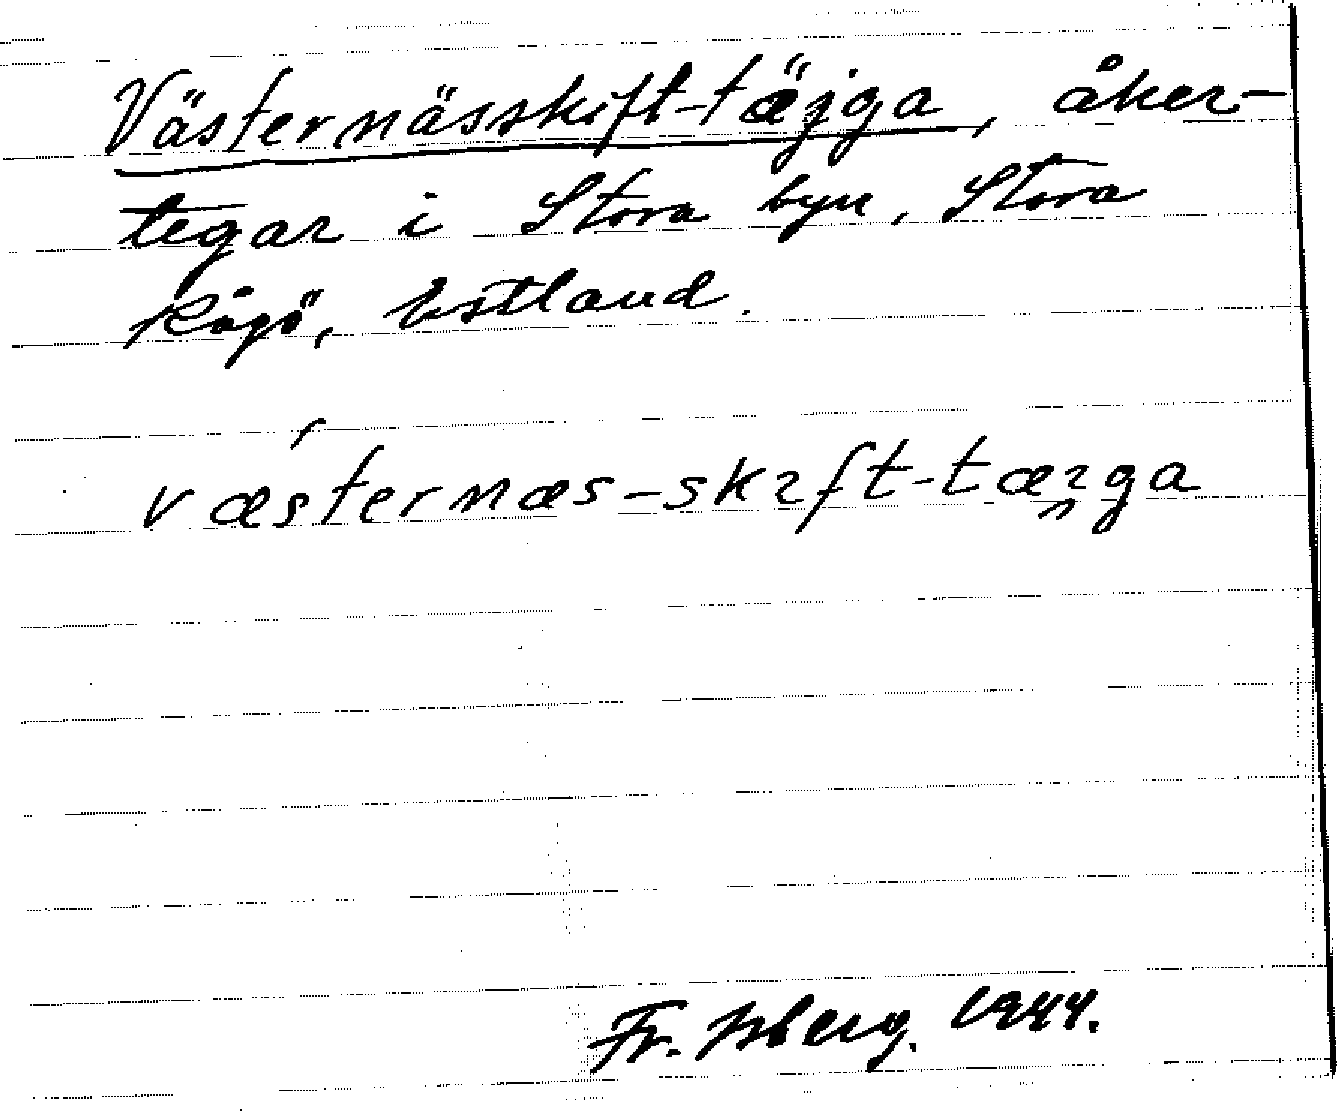 Västernässkift-täjga, åker-
tegar i Stora byn, Stora
Rågö, Estland.
væsternæs-skɩft-tæɩ̯ga
Fr. Isberg. 1944.